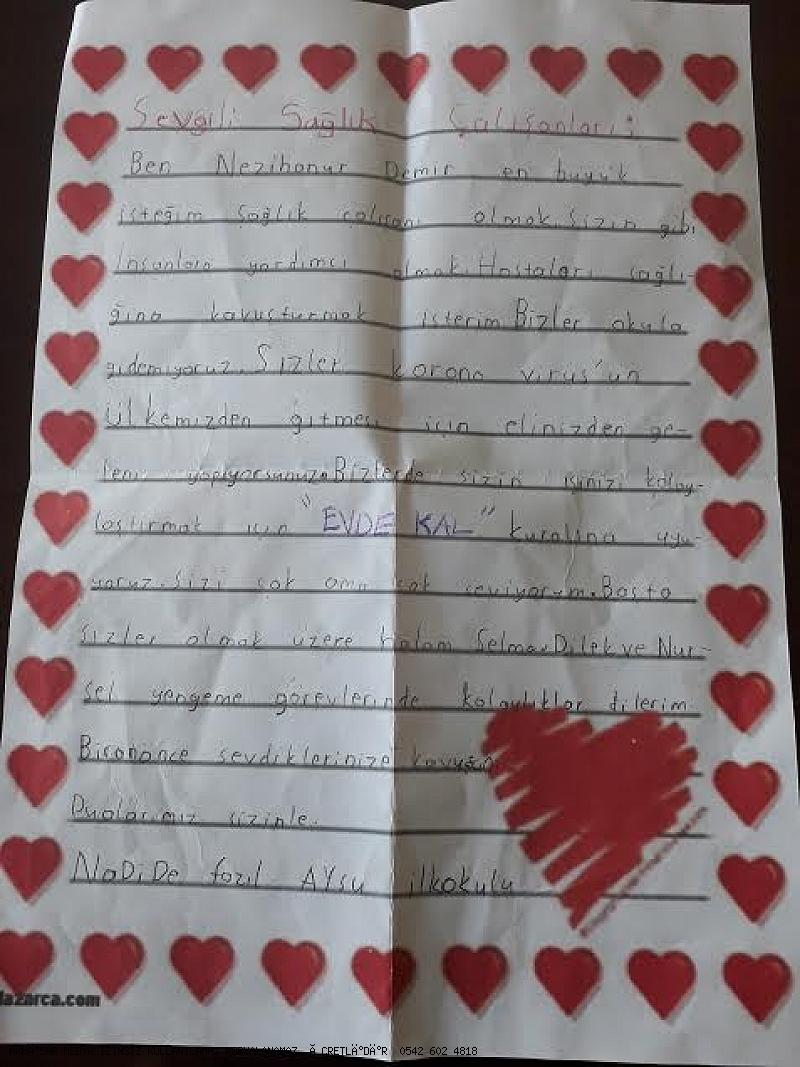 Sevgili Sağlık Çalışanları;
Ben Nezihanur Demir en büyük
isteğim Sağlık çalışanı olmak. Sizin gibi
İnsanlara yardımcı olmak. Hastaları sağlı-
ğına kavuşturmak isterim. Bizler okula
gidemiyoruz. Sizler korona virüs'ün
Ülkemizden gitmesi için elinizden ge-
leni yapıyorsunuz. Bizlerde sizin işinizi kolay-
laştırmak için "EVDE KAL" kuralına uyu-
yoruz. Sizi çok ama çok seviyorum. Başta
Sizler olmak üzere halam Selma, Dilek ve Nur-
sel yengeme görevlerinde kolaylıklar dilerim.
Biranönce sevdiklerinize kavuşun
Dualarımız sizinle.
NaDiDe fazıl AYsu ilkokulu
lazarca.com
0542 602 4818